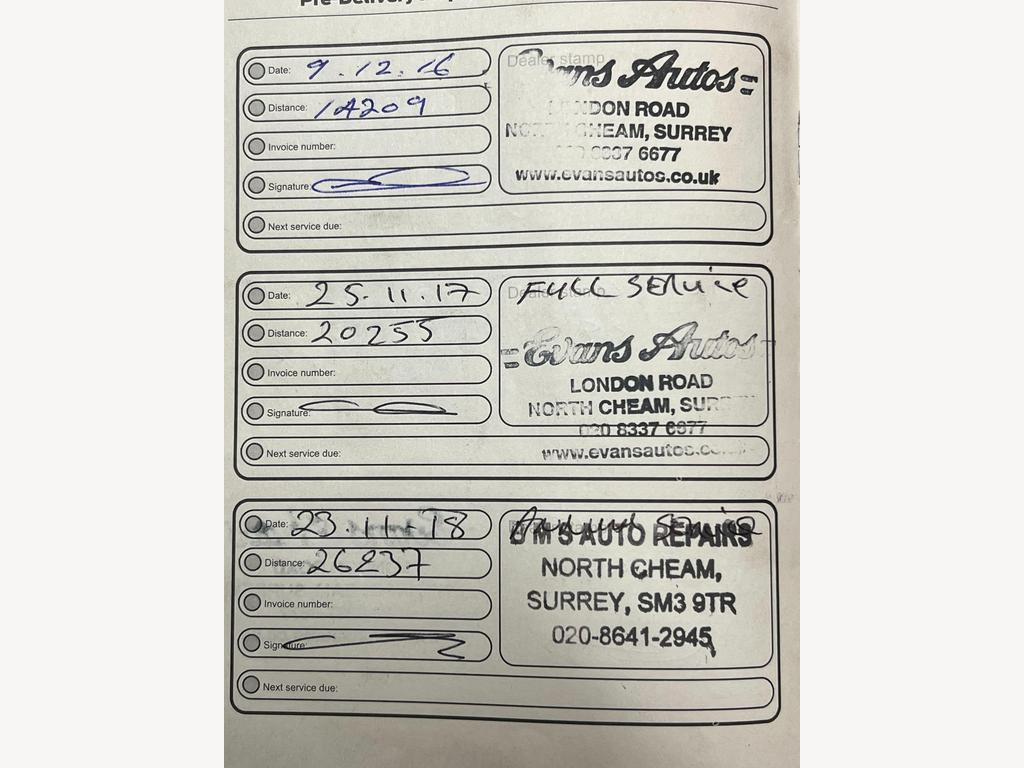 Date: 9.12.16
Distance: 14209
Invoice number:
Signature:
Next service due:
Dealer stamp
Evans Autos
LONDON ROAD
NORTH CHEAM, SURREY
020 8337 6677
www.evansautos.co.uk
Date: 25.11.17
Distance: 20255
Invoice number:
Signature:
Next service due:
Dealer stamp
FULL SERVICE
Evans Autos
LONDON ROAD
NORTH CHEAM, SURREY
020 8337 6677
www.evansautos.co
Date: 23.11.18
Distance: 26237
Invoice number:
Signature:
Next service due:
Annual Service
M S AUTO REPAIRS
NORTH CHEAM,
SURREY, SM3 9TR
020-8641-2945